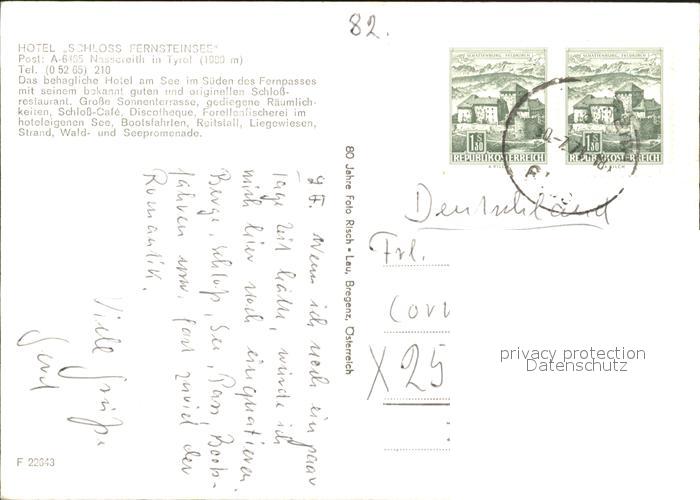 82.
HOTEL „SCHLOSS FERNSTEINSEE"
Post: A-6465 Nassereith in Tyrol (1000 m)
Tel. (0 52 65) 210
Das behagliche Hotel am See im Süden des Fernpasses
mit seinem bekannt guten und originellen Schloß-
restaurant. Große Sonnenterrasse, gediegene Räumlich-
keiten, Schloß-Café, Discotheque, Forellenfischerei im
hoteleigenen See, Bootsfahrten, Reitstall, Liegewiesen,
Strand, Wald- und Seepromenade.
SCHATTENBURG, FELDKIRCH
S 1.80
REPUBLIK ÖSTERREICH
SCHATTENBURG, FELDKIRCH
S 1.80
REPUBLIK ÖSTERREICH
Deutschland
Frl.
Corn
X 25
Wenn ich noch ein paar
Tage Zeit hätte, würde ich
mich hier noch einquartieren.
Berge, Schloß, See, Pass, Boots-
fahren usw. fast zuviel der
Romantik.
Viele Grüße
Gerd
80 Jahre Foto Risch-Lau, Bregenz, Österreich
F 22643
privacy protection
Datenschutz